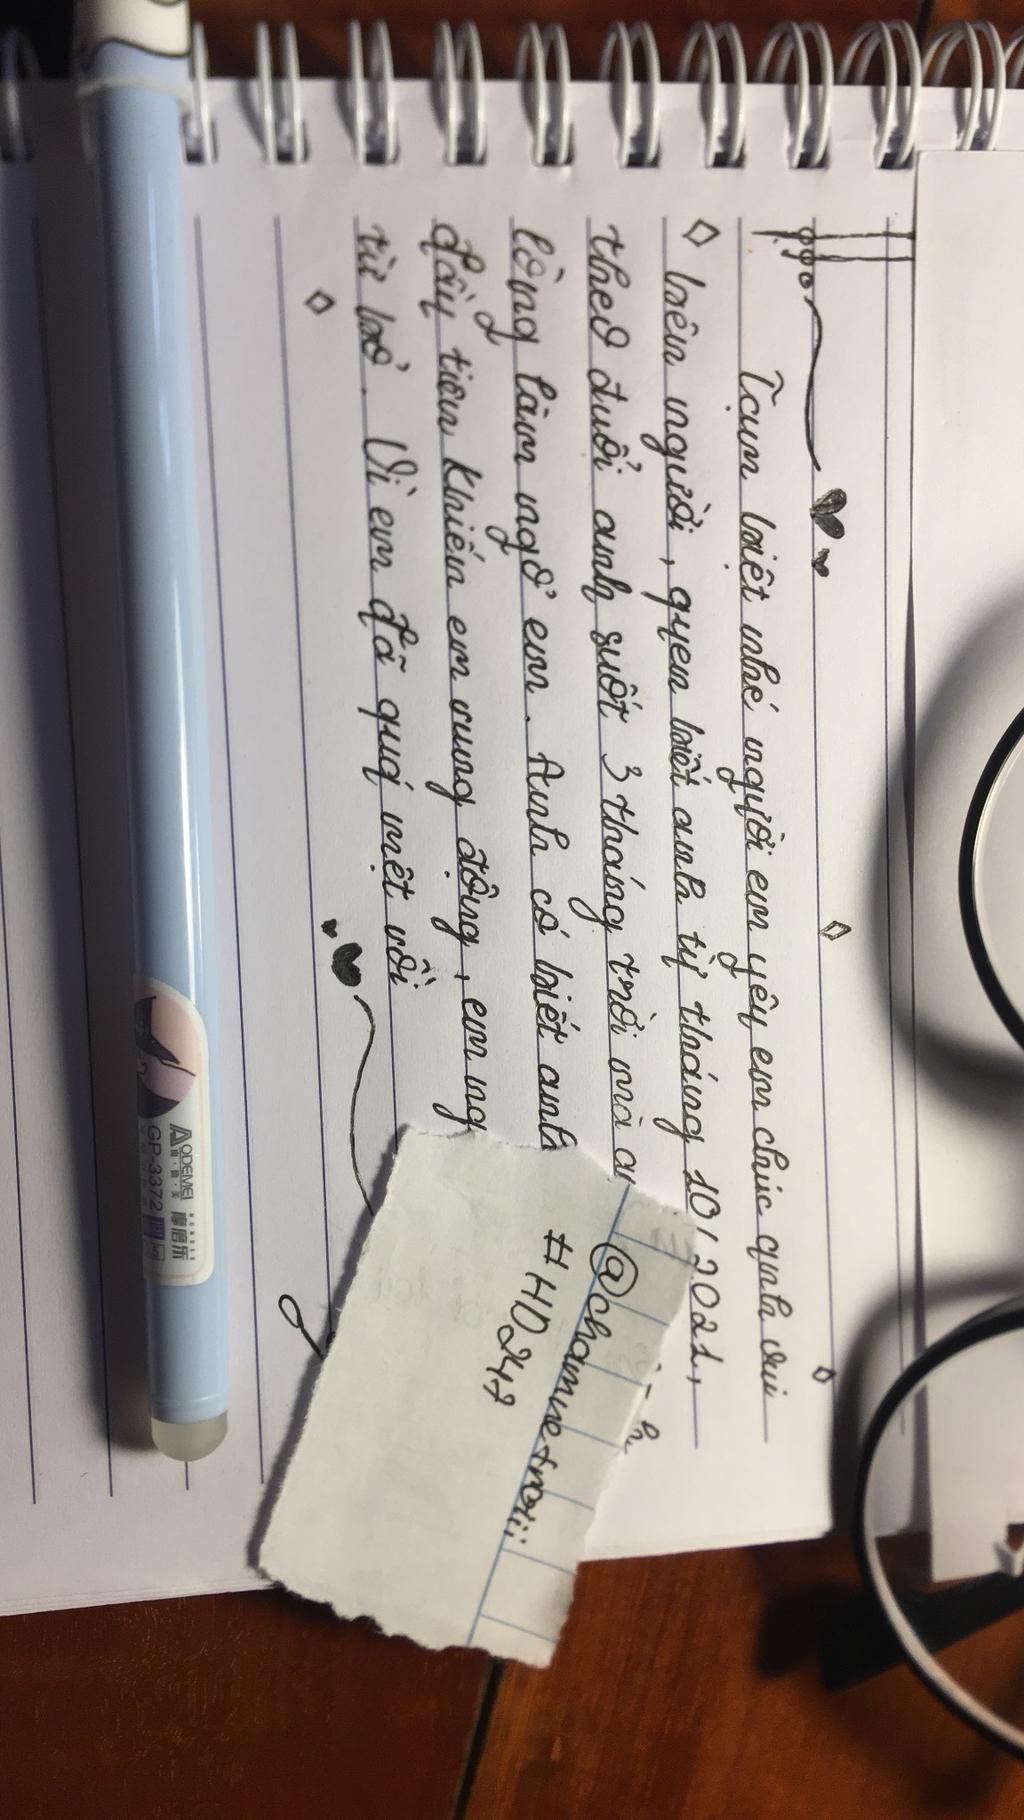 Tạm biệt nhé người em yêu em chúc anh vui
bên người, quen biết anh từ tháng 10/2021,
theo đuổi anh suốt 3 tháng trời mà a
lòng làm ngơ em. Anh có biết anh
đầu tiên khiến em rung động, em
từ bỏ. Vì em đã quá mệt rồi
@chamnetroiii
#HD247
AODEMEI
GP-3372